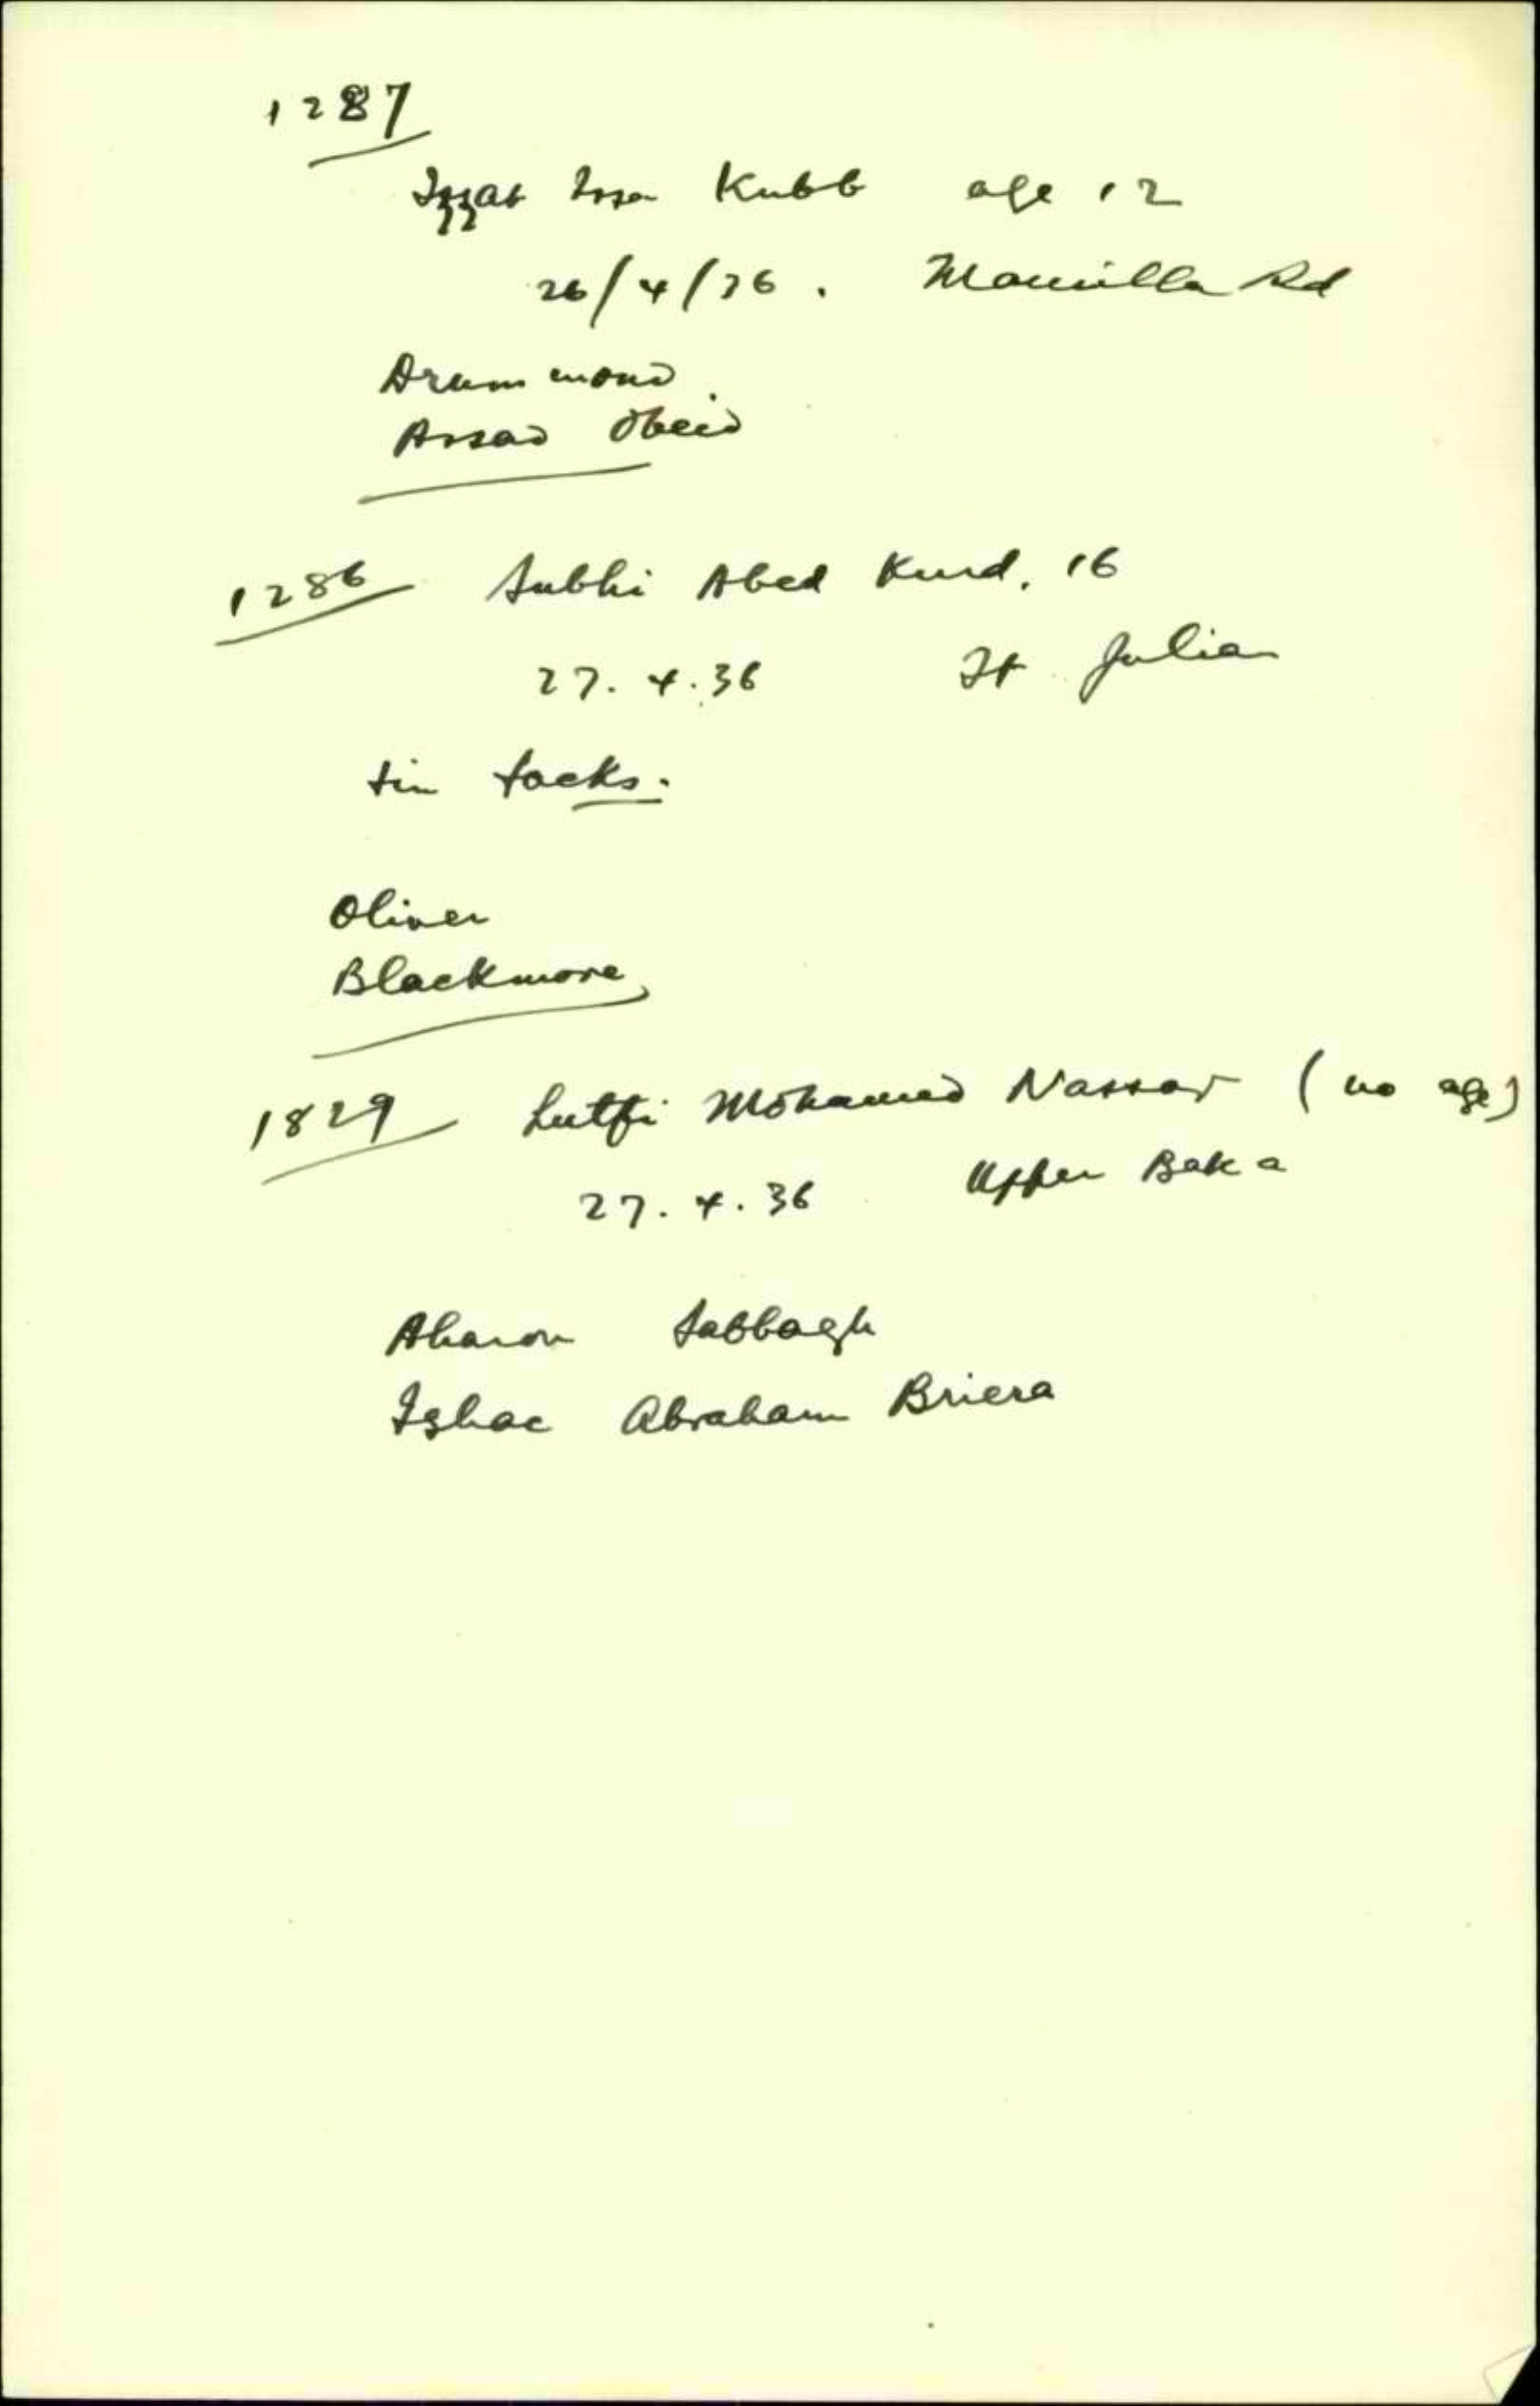 1287
Izzat Issa Kubb age 12
26/4/36. Mamilla Rd
Drummond
Assad Obeid
1286 Subhi Abed Kurd. 16
27.4.36 St Julian
tin tacks.
Oliver
Blackmore
1829 Lutfi Mohamed Nassar (no age)
27.4.36 Upper Baka
Aharon Sabbagh
Ishac Abraham Briera